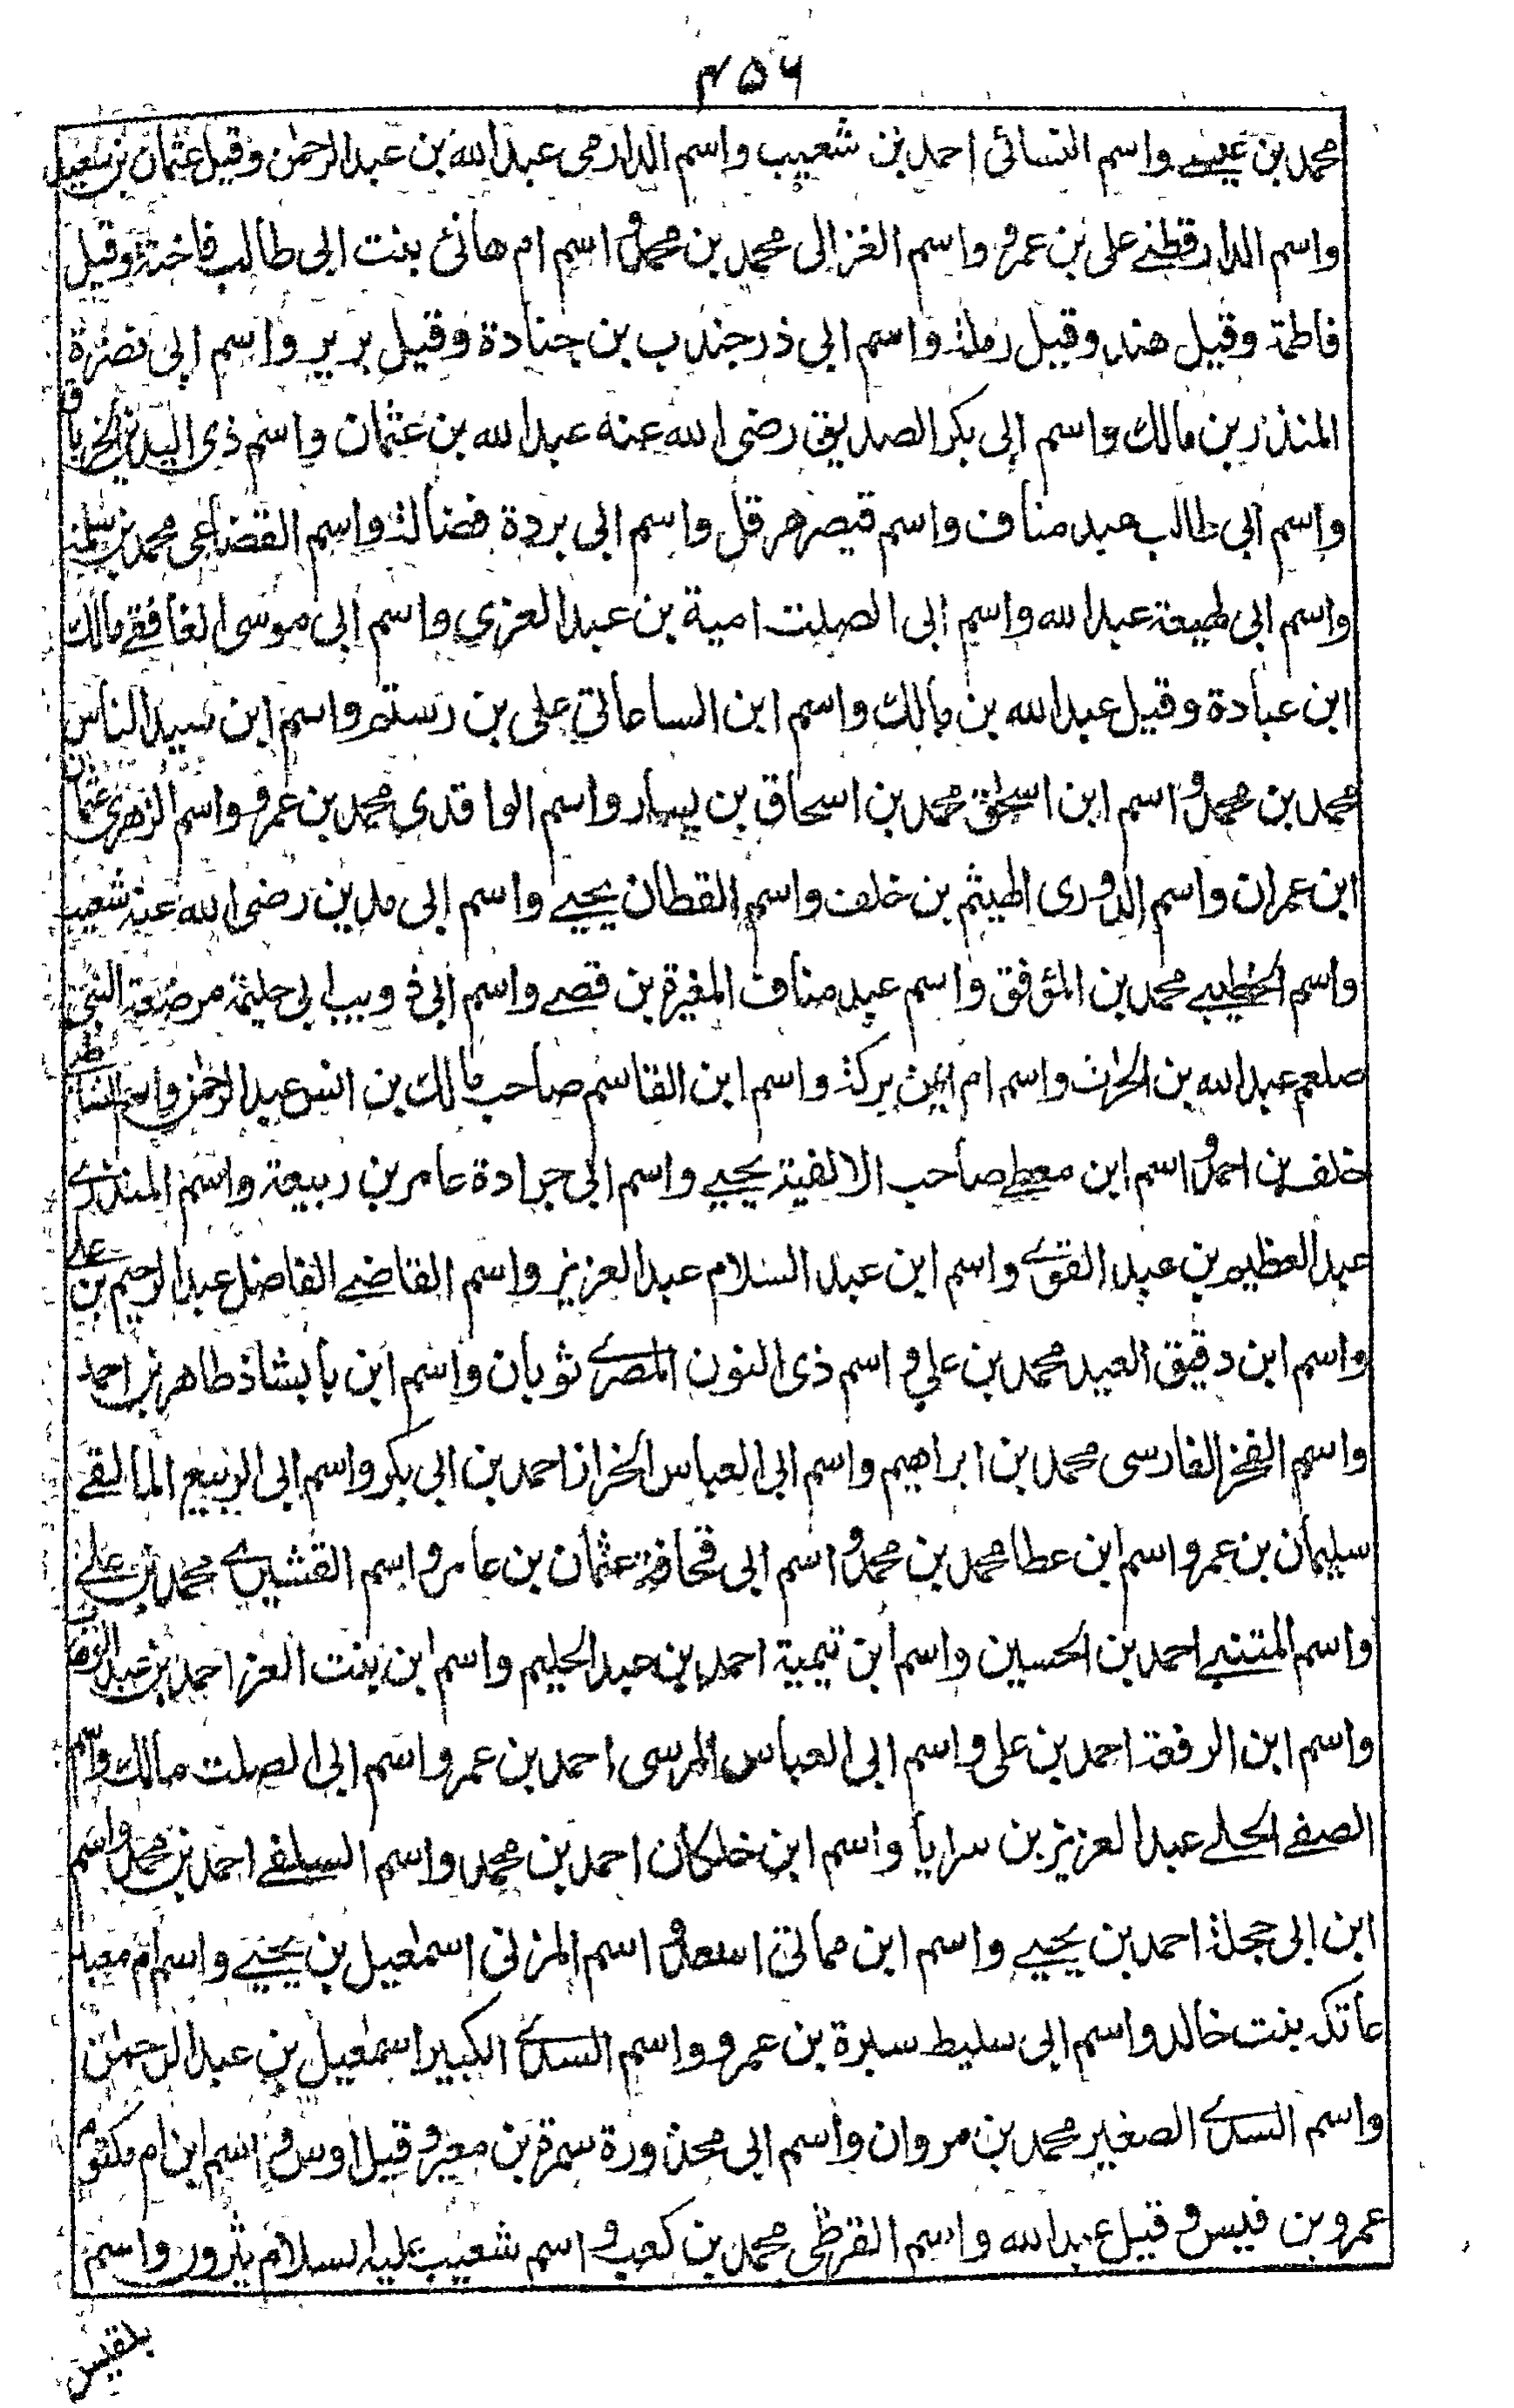 ۴۵۶
محمد بن عيسے واسم النسائى احمد بن شعيب واسم الدارمى عبد الله بن عبد الرحمن وقيل عثمان بن سعيد
واسم الدارقطنے على بن عمرو واسم الغزالى محمد بن محمد واسم ام هانئ بنت ابى طالب فاختة وقيل
فاطمة وقيل هند وقيل رملة واسم ابى ذر جندب بن جنادة وقيل برير واسم ابى نضرة
المنذر بن مالك واسم ابى بكر الصديق رضى الله عنه عبد الله بن عثمان واسم ذى اليدين الخرباق
واسم ابى طالب عبد مناف واسم قيصر هرقل واسم ابى بردة فضالة واسم القضاعى محمد بن سلمة
واسم ابى لهيعة عبد الله واسم ابى الصلت امية بن عبد العزي واسم ابى موسى الغافقے مالك
ابن عبادة وقيل عبد الله بن مالك واسم ابن الساعاتي على بن رستم واسم ابن سيد الناس
محمد بن محمد واسم ابن اسحٰق محمد بن اسحاق بن يسار واسم الواقدي محمد بن عمرو واسم الزهرى عثمان
ابن عمران واسم الدورى الهيثم بن خلف واسم القطان يحيے واسم ابى مدين رضى الله عنه شعيب
واسم الخطيب محمد بن المؤفق واسم عبد مناف المغيرة بن قصے واسم ابى ذويب ابى حليمة مرضعة النبى
صلعم عبد الله بن الحرث واسم ام ايمن بركة واسم ابن القاسم صاحب مالك بن انس عبد الرحمٰن واسم الشاطر
خلف بن احمد واسم ابن معطے صاحب الالفية يحيے واسم ابى جرادة عامر بن ربيعة واسم المنذرے
عبد العظيم بن عبد القوے واسم ابن عبد السلام عبد العزيز واسم القاضے الفاضل عبد الرحيم بن علے
واسم ابن دقيق العيد محمد بن علي واسم ذى النون المصرے ثوبان واسم ابن بابشاذ طاهر بن احمد
واسم الفخر الفارسى محمد بن ابراهيم واسم ابى العباس الخراز احمد بن ابى بكر واسم ابى الربيع المالقے
سليمان بن عمر واسم ابن عطا محمد بن محمد واسم ابى قحافة عثمان بن عامر واسم القشيرے محمد بن علے
واسم المتنبے احمد بن الحسين واسم ابن تيمية احمد بن عبد الحليم واسم ابن بنت العز احمد بن عبد الوهاب
واسم ابن الرفعة احمد بن على واسم ابى العباس المرسى احمد بن عمر واسم ابى الصلت مالك واسم
الصفے الحلے عبد العزيز بن سرايا واسم ابن خلكان احمد بن محمد واسم السلفے احمد بن محمد واسم
ابن ابى حجلة احمد بن يحيے واسم ابن مماتى اسعد واسم المزنى اسمٰعيل بن يحيے واسم ام معبد
عاتكه بنت خالد واسم ابى سليط سبرة بن عمرو واسم السدے الكبير اسمٰعيل بن عبد الرحمٰن
واسم السدے الصغير محمد بن مروان واسم ابى محذورة سمرة بن معير وقيل اوس واسم ابن ام مكتوم
عمرو بن قيس وقيل عبد الله واسم القرظى محمد بن كعب واسم شعيب عليه السلام يثرون واسم
بلقيس